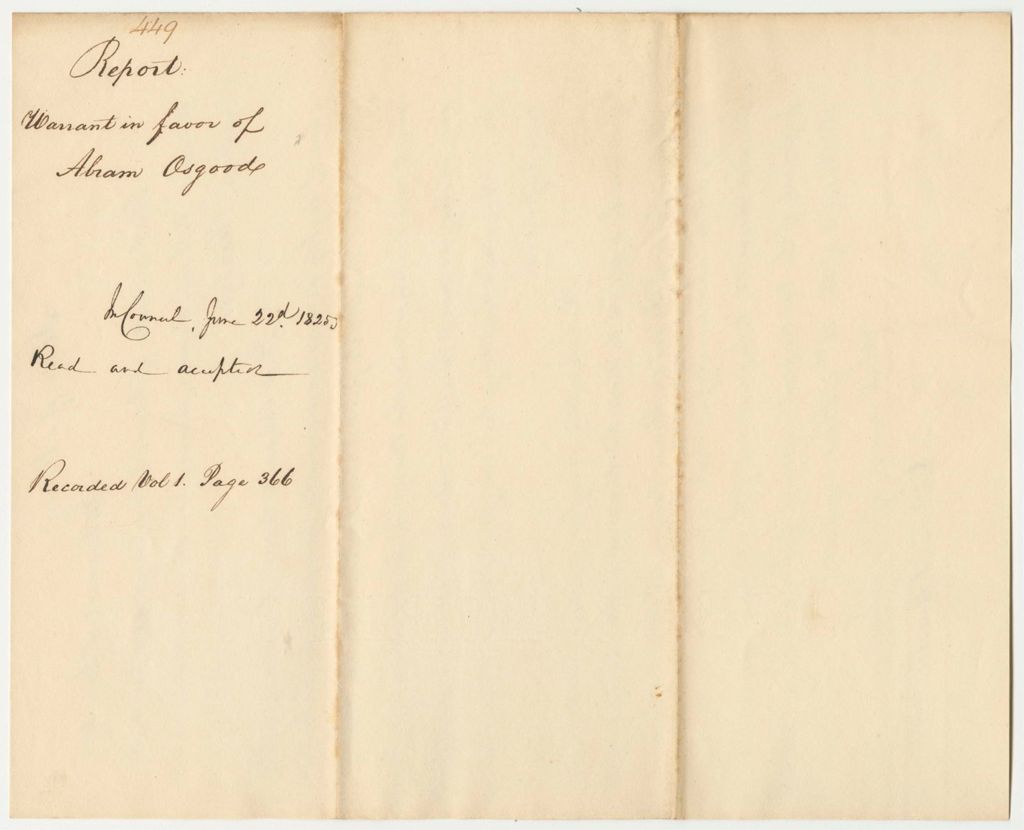 449
Report:
Warrant in favor of
Abram Osgood
In Council, June 22d. 1825
Read and accepted
Recorded Vol 1. Page 366